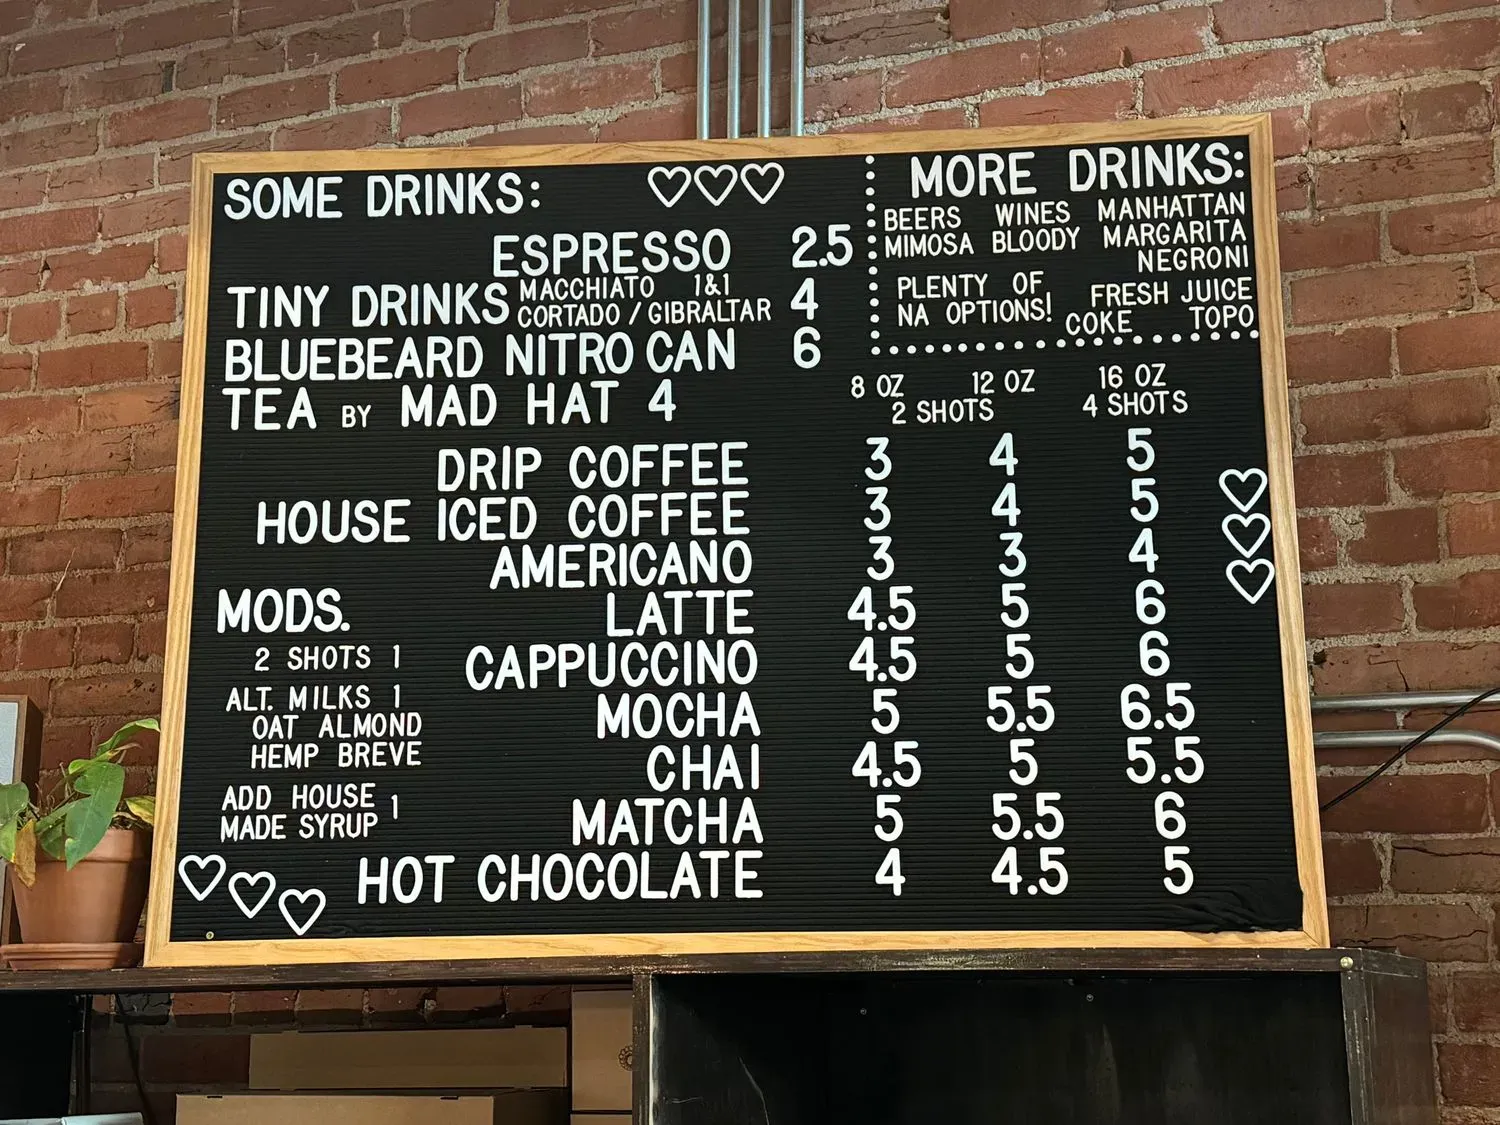 SOME DRINKS:
ESPRESSO 2.5
TINY DRINKS MACCHIATO 1&1 4
CORTADO / GIBRALTAR
BLUEBEARD NITRO CAN 6
TEA BY MAD HAT 4
MORE DRINKS:
BEERS WINES MANHATTAN
MIMOSA BLOODY MARGARITA
NEGRONI
PLENTY OF
NA OPTIONS!
FRESH JUICE
COKE TOPO
8 OZ 12 OZ 16 OZ
2 SHOTS 4 SHOTS
DRIP COFFEE 3 4 5
HOUSE ICED COFFEE 3 4 5
AMERICANO 3 3 4
LATTE 4.5 5 6
CAPPUCCINO 4.5 5 6
MOCHA 5 5.5 6.5
CHAI 4.5 5 5.5
MATCHA 5 5.5 6
HOT CHOCOLATE 4 4.5 5
MODS.
2 SHOTS 1
ALT. MILKS 1
OAT ALMOND
HEMP BREVE
ADD HOUSE 1
MADE SYRUP